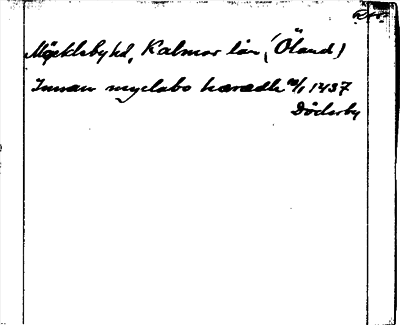 Möcklebyhd, Kalmar län, (Öland)
Innan myclabo hæradh 1437
Döderby